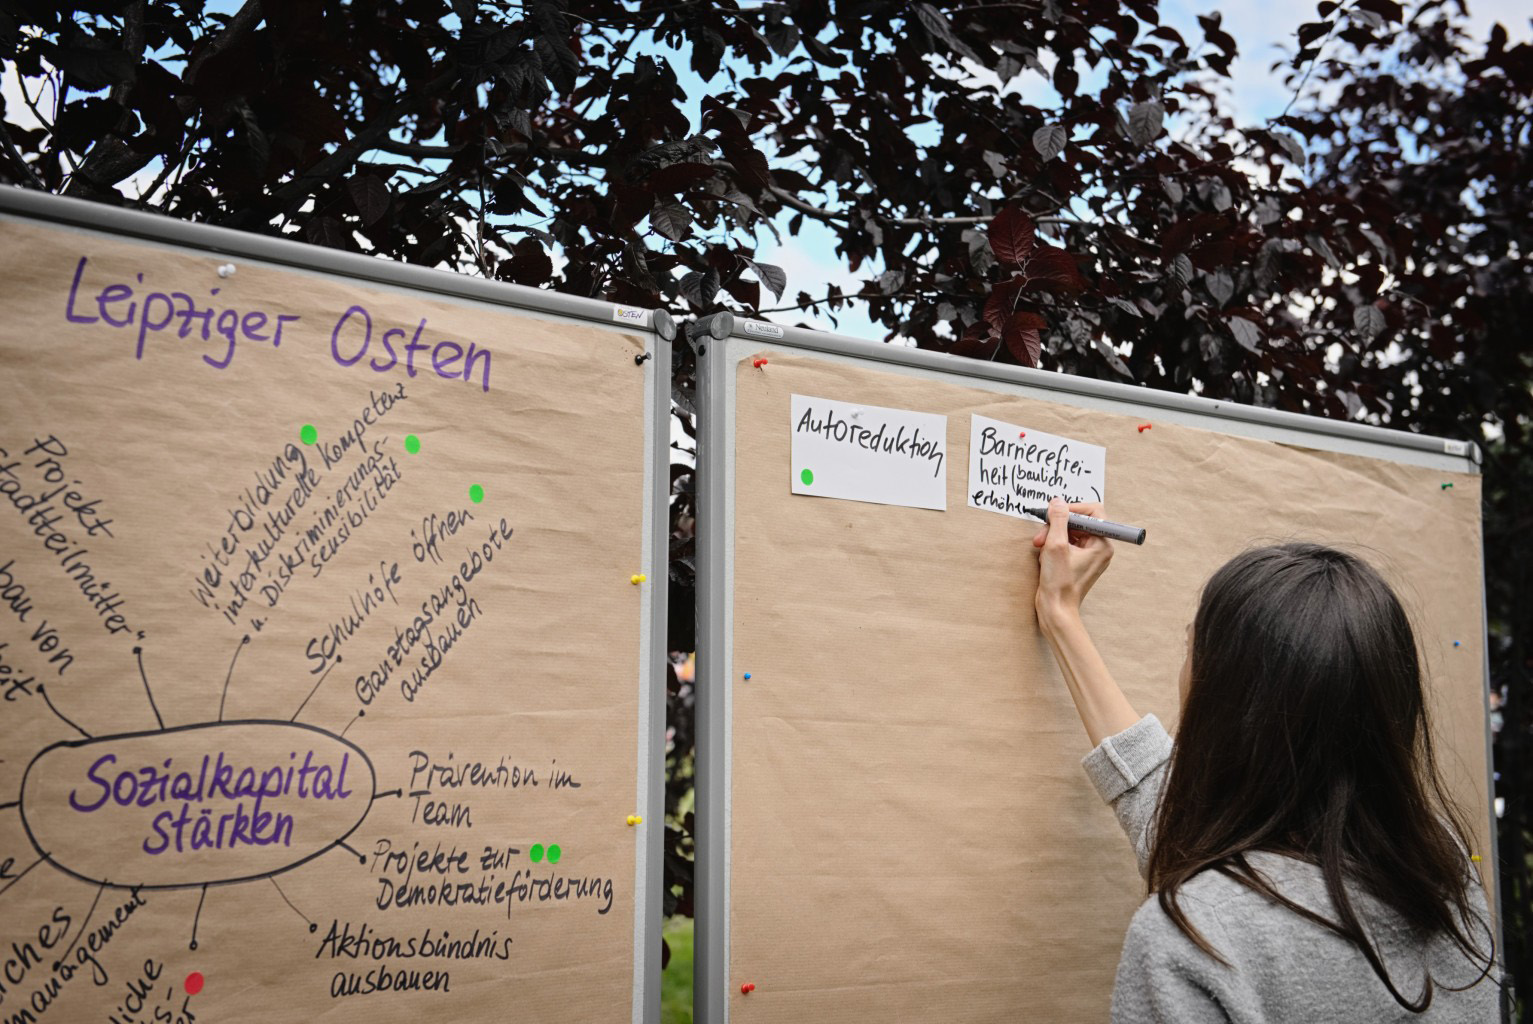 Leipziger Osten
OSTEN
Neuland
Projekt
Stadtteilmütter"
bau von
Weiterbildung
interkulturelle Kompetenz
u. Diskriminierungs-
sensibilität
Schulhöfe öffnen
Ganztagsangebote
ausbauen
Sozialkapital
stärken
Prävention im
Team
Projekte zur
Demokratieförderung
Aktionsbündnis
ausbauen
Autoreduktion
Barrierefrei-
heit (baulich,
erhöhen